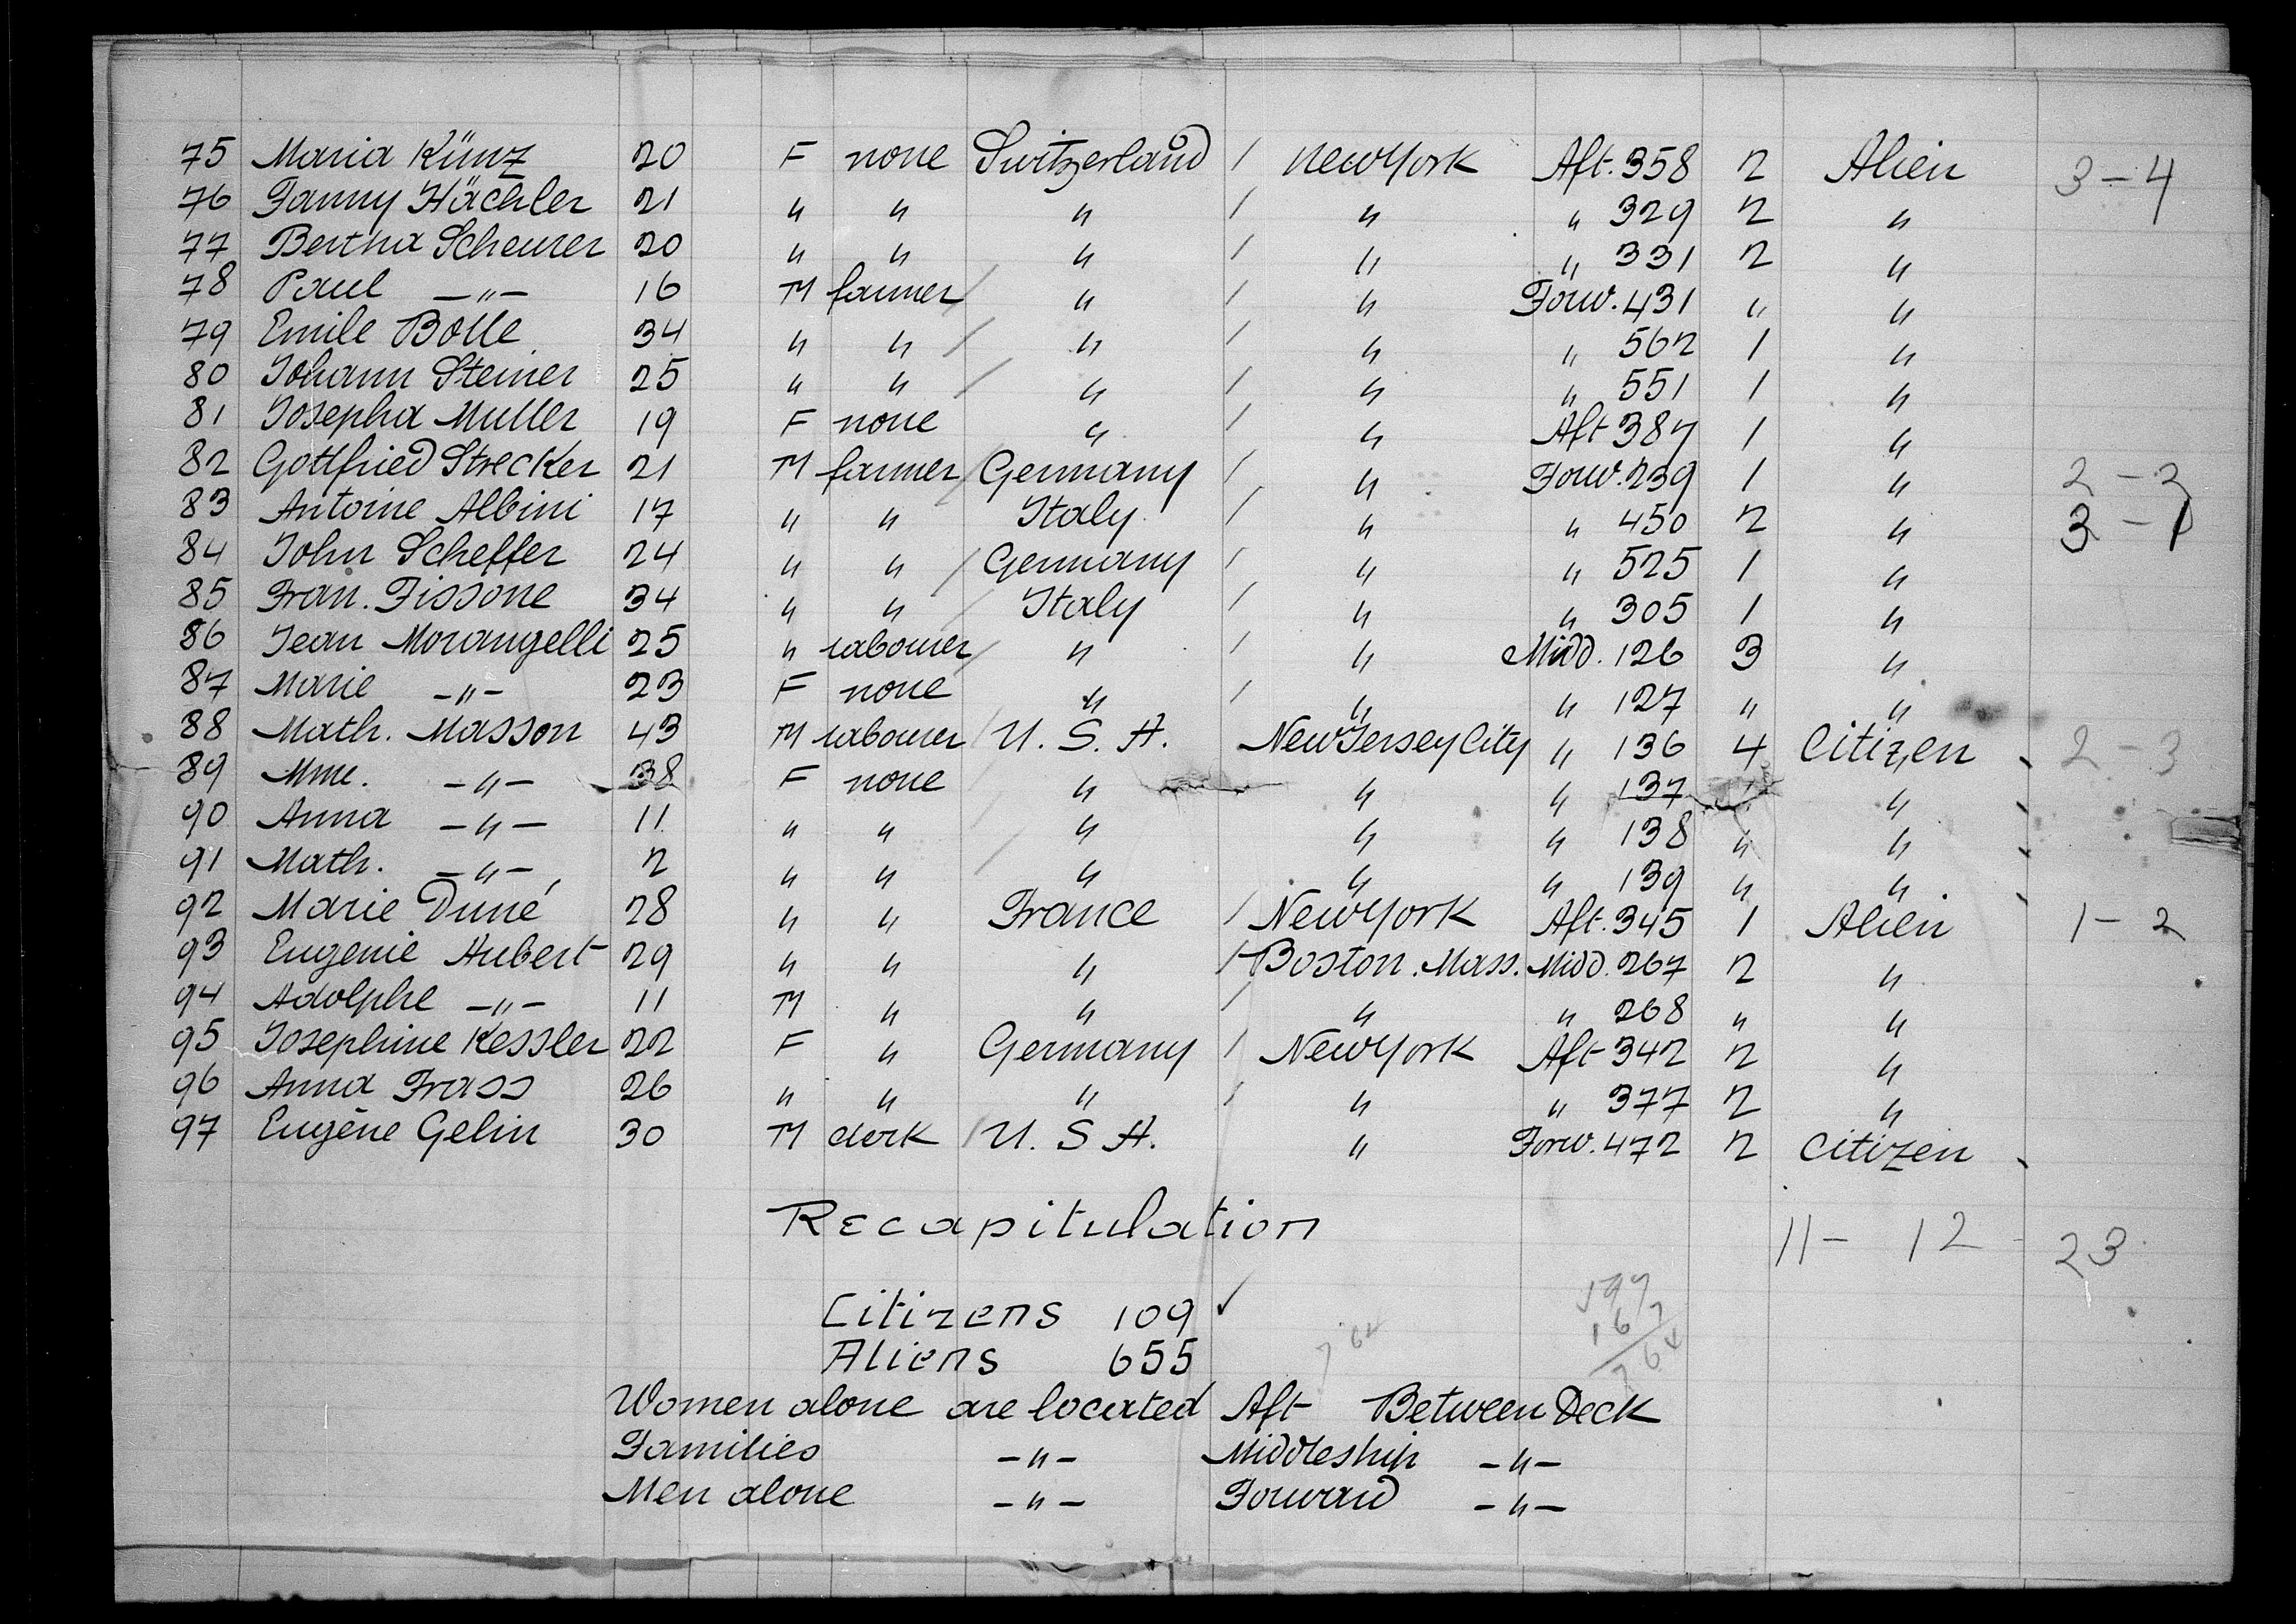 75 Maria Künz 20 F none Switzerland / New York Aft. 358 2 Alien 3-4
76 Fanny Hächler 21 " " " / " " 329 2 "
77 Bertha Scheurer 20 " " " / " " 331 2 "
78 Paul -"- 16 M farmer / " / " Forw. 431 " "
79 Emile Bolle 34 " " / " / " " 562 1 "
80 Johann Steiner 25 " " / " / " " 551 1 "
81 Josepha Muller 19 F none " / " Aft 387 1 "
82 Gottfried Strecker 21 M farmer / Germany / " Forw. 239 1 " 2-3
83 Antoine Albini 17 " " Italy / " " 450 2 " 3-1
84 John Scheffer 24 " " / Germany / " " 525 1 "
85 Fran. Fissone 34 " " / Italy / " " 305 1 "
86 Jean Morangelli 25 " labourer / " / " Midd. 126 3 "
87 Marie -"- 23 F none " / " " 127 " "
88 Math. Masson 43 M labourer / U. S. A. New Jersey City " 136 4 Citizen 2-3
89 Mme. -"- 38 F none / " " " 137 "
90 Anna -"- 11 " " / " " " 138 " "
91 Math. -"- 2 " " / " " " 139 " "
92 Marie Duné 28 " " France / New York Aft. 345 1 Alien 1-2
93 Eugenie Hubert 29 " " " / Boston. Mass. Midd. 267 2 "
94 Adolphe -"- 11 M " " / " " 268 " "
95 Josephine Kessler 22 F " Germany / New York Aft 342 2 "
96 Anna Frass 26 " " " / " " 377 2 "
97 Eugène Gelin 30 M clerk / U. S A. " Forw. 472 2 Citizen
Recapitulation
11- 12 23
Citizens 109 ✓
Aliens 655
167
764
Women alone are located Aft Between Deck
Families -"- Middleship -"-
Men alone -"- Forward -"-